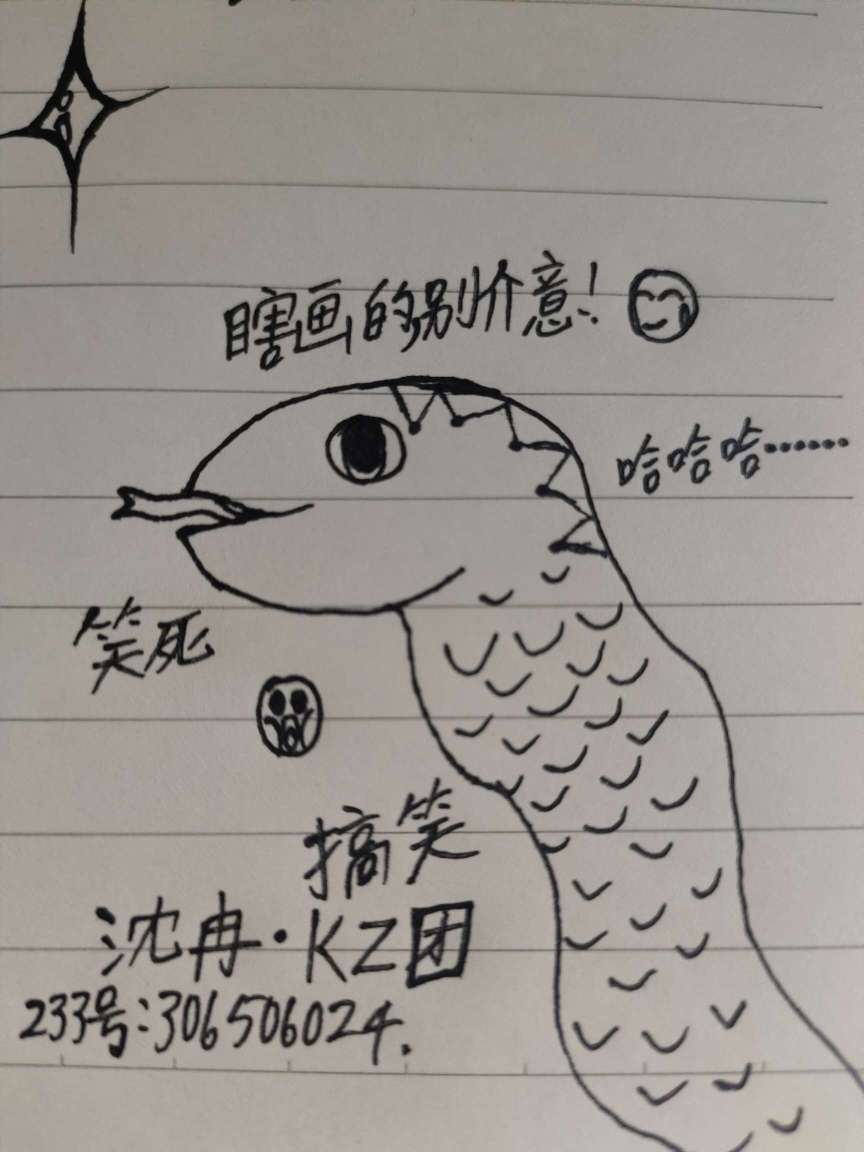 瞎画的别介意!
哈哈哈……
笑死
搞笑
沈冉·KZ团
233号:306506024.